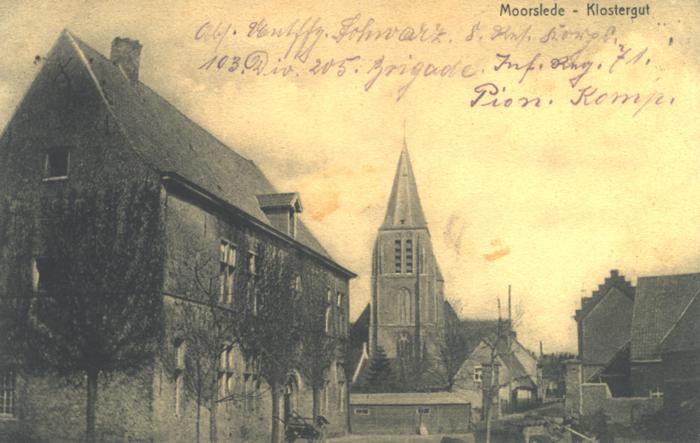 Moorslede - Klostergut
Abs. Schwarz. 8. Res. Korps.
103. Div. 205. Brigade. Inf. Reg. 71.
Pion. Komp.